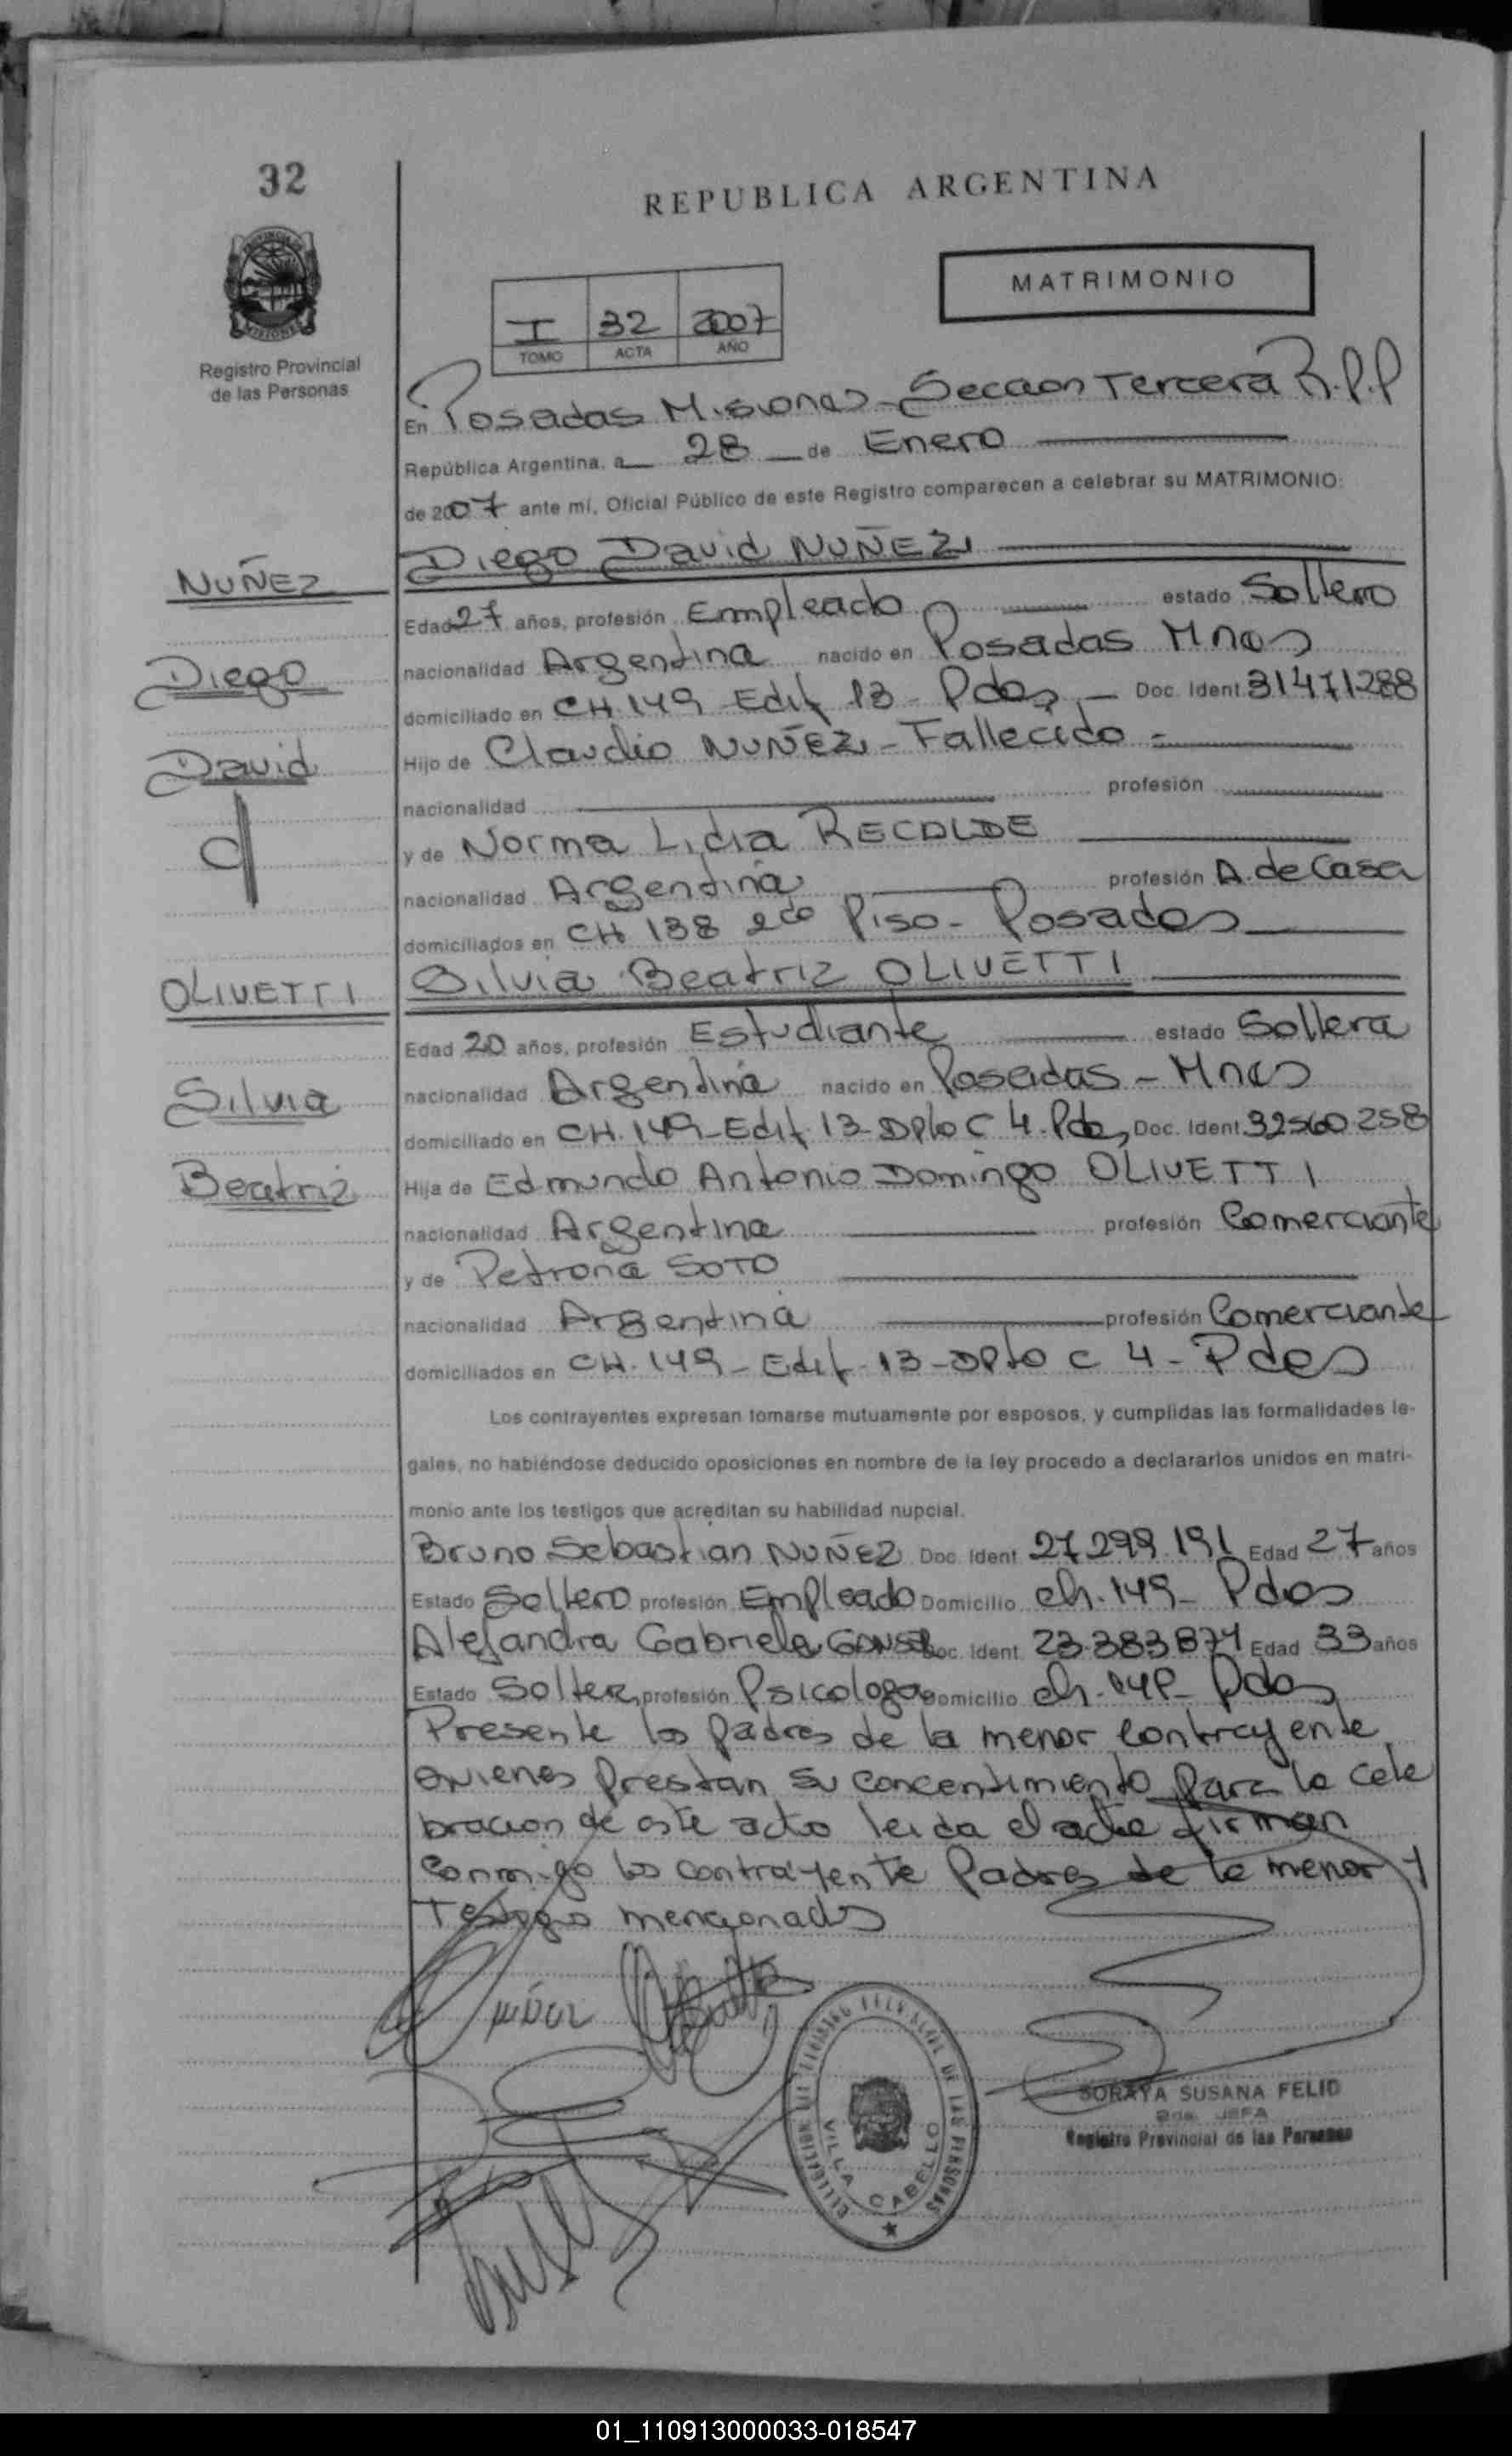 32
REPUBLICA ARGENTINA
PROVINCIA DE MISIONES
Registro Provincial
de las Personas
MATRIMONIO
I 32 2007
TOMO ACTA AÑO
En Posadas Misiones - Seccion Tercera R.P.P
República Argentina, a 28 de Enero
de 2007 ante mí, Oficial Público de este Registro comparecen a celebrar su MATRIMONIO:
Diego David NUÑEZ
NUÑEZ
Edad 27 años, profesión Empleado estado Soltero
Diego
nacionalidad Argentina nacido en Posadas Mnes
domiciliado en CH.149 Edif 13 - Pdas - Doc. Ident. 31471288
David
Hijo de Claudio NUÑEZ - Fallecido -
nacionalidad profesión
y de Norma Lidia RECALDE
nacionalidad Argentina profesión A. de Casa
domiciliados en CH 138 2do Piso - Posadas
OLIVETTI
Silvia Beatriz OLIVETTI
Edad 20 años, profesión Estudiante estado Soltera
Silvia
nacionalidad Argentina nacido en Posadas - Mnes
domiciliado en CH.149 - Edif. 13 - Dpto C 4. Pdas, Doc. Ident. 32560258
Beatriz
Hija de Edmundo Antonio Domingo OLIVETTI
nacionalidad Argentina profesión Comerciante
y de Petrona SOTO
nacionalidad Argentina profesión Comerciante
domiciliados en CH.149 - Edif. 13 - Dpto C 4 - Pdas
Los contrayentes expresan tomarse mutuamente por esposos, y cumplidas las formalidades le-
gales, no habiéndose deducido oposiciones en nombre de la ley procedo a declararlos unidos en matri-
monio ante los testigos que acreditan su habilidad nupcial.
Bruno Sebastian NUÑEZ Doc. Ident. 27.299.191 Edad 27 años
Estado Soltero profesión Empleado Domicilio ch.149 - Pdas
Alejandra Gabriela Doc. Ident. 23.383.874 Edad 33 años
Estado Soltera profesión Psicologa Domicilio ch. Pdas
Presente los padres de la menor contrayente
quienes prestan su concentimiento para la cele
bracion de este acto leida el acta firman
conmigo los contrayente Padres de la menor y
Testigos mencionados
SORAYA SUSANA FELID
2da. JEFA
Registro Provincial de las Personas
DE LAS PERSONAS
VILLA CABELLO
01_110913000033-018547